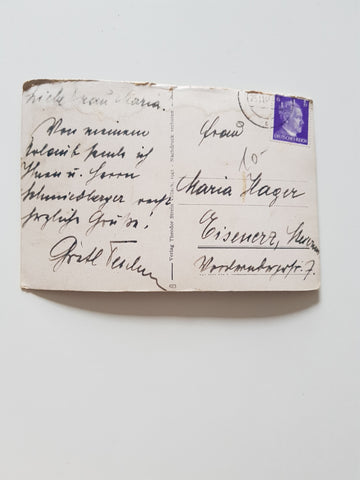 Liebe Frau Maria.
Von meinem
Urlaub sende ich
Ihnen u. Herrn
Schmiedberger recht
herzliche Grüße!
Gretl
Verlag Theodor Nachdruck verboten
DEUTSCHES REICH
Frau
10-
Maria Hager
Eisenerz,
7.